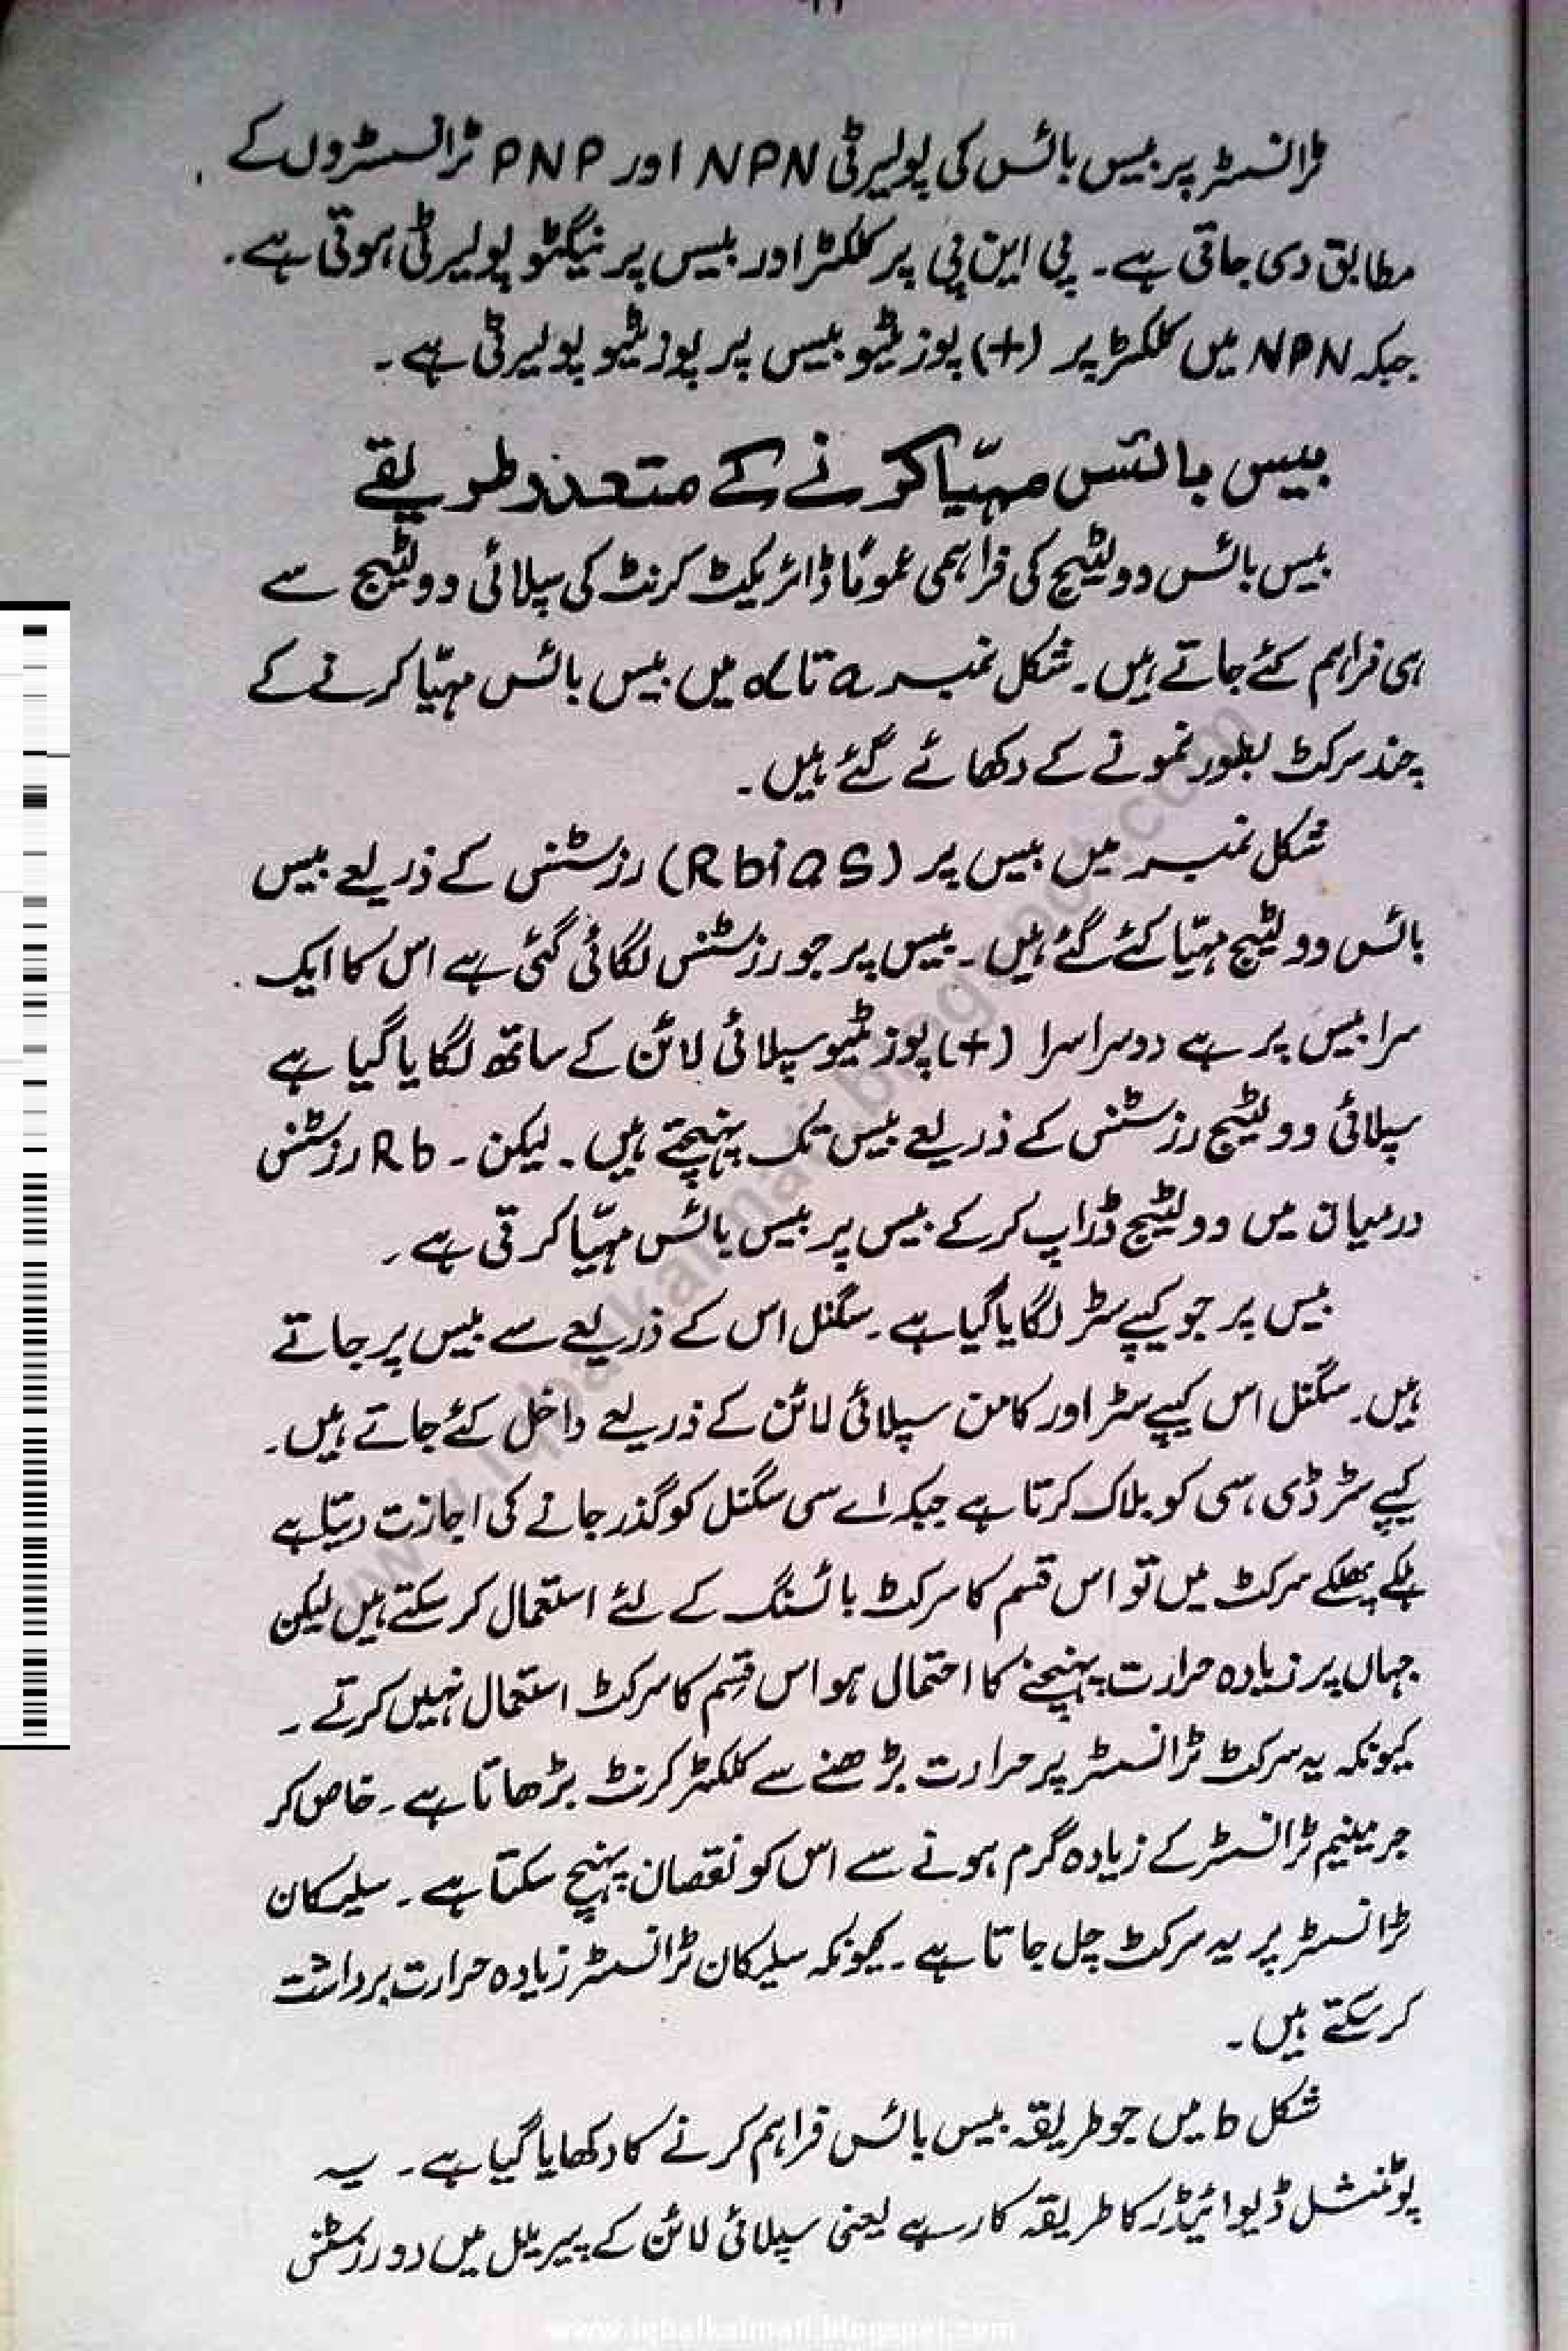 ٹرانسسٹر پر بیس بائس کی پولیرٹی NPN اور PNP ٹرانسسٹروں کے
مطابق دی جاتی ہے۔ پی این پی پر کلکٹر اور بیس پر نیگٹو پولیرٹی ہوتی ہے۔
جبکہ NPN میں کلکٹر پر (+) پوزیٹو بیس پر پوزیٹیو پولیرٹی ہے۔
بیس بائس مہیّا کرنے کے متعدد طریقے
بیس بائس وولٹیج کی فراہمی عموماً ڈائریکٹ کرنٹ کی سپلائی وولٹیج سے
ہی فراہم کئے جاتے ہیں۔ شکل نمبر a تا d میں بیس بائس مہیّا کرنے کے
چند سرکٹ بطور نمونے کے دکھائے گئے ہیں۔
شکل نمبر میں بیس پر (Rbias) رزسٹنس کے ذریعے بیس
بائس وولٹیج مہیّا کئے گئے ہیں۔ بیس پر جو رزسٹنس لگائی گئی ہے اس کا ایک
سرا بیس پر ہے دوسرا سرا (+) پوزیٹیو سپلائی لائن کے ساتھ لگایا گیا ہے
سپلائی وولٹیج رزسٹنس کے ذریعے بیس تک پہنچتے ہیں۔ لیکن۔ Rb رزسٹنس
درمیان میں وولٹیج ڈراپ کرکے بیس پر بیس بائس مہیّا کرتی ہے۔
بیس پر جو کیپے سٹر لگایا گیا ہے۔ سگنل اس کے ذریعے سے بیس پر جاتے
ہیں۔ سگنل اس کیپے سٹر اور کامن سپلائی لائن کے ذریعے داخل کئے جاتے ہیں۔
کیپے سٹر ڈی، سی کو بلاک کرتا ہے جبکہ اے سی سگنل کو گذر جانے کی اجازت دیتا ہے
ہلکے پھلکے سرکٹ میں تو اس قسم کا سرکٹ بائسنگ کے لئے استعمال کر سکتے ہیں لیکن
جہاں پر زیادہ حرارت پہنچنے کا احتمال ہو اس قسم کا سرکٹ استعمال نہیں کرتے۔
کیونکہ یہ سرکٹ ٹرانسسٹر پر حرارت بڑھنے سے کلکٹر کرنٹ بڑھاتا ہے۔ خاص کر
جرمینیم ٹرانسسٹر کے زیادہ گرم ہونے سے اس کو نقصان پہنچ سکتا ہے۔ سلیکان
ٹرانسسٹر پر یہ سرکٹ چل جاتا ہے۔ کیونکہ سلیکان ٹرانسسٹر زیادہ حرارت برداشت
کر سکتے ہیں۔
شکل b میں جو طریقہ بیس بائس فراہم کرنے کا دکھایا گیا ہے۔ یہ
پوٹنشل ڈیوائیڈر کا طریقہ کار ہے یعنی سپلائی لائن کے پیریلل میں دو رزسٹنس
www.iqbalkalmati.blogspot.com